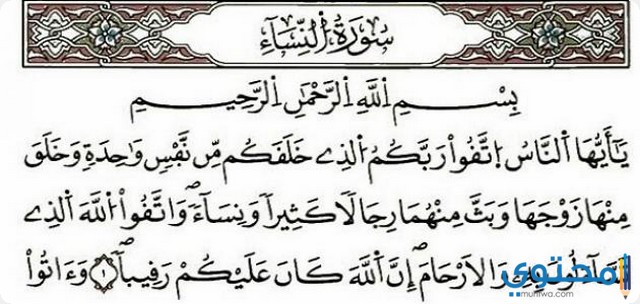 سُورَةُ اُلنِّسَآءِ
بِسْمِ اِللَّهِ اِلرَّحْمَٰنِ اِلرَّحِيمِ
يَٰٓأَيُّهَا اَلنَّاسُ اُ۪تَّقُواْ رَبَّكُمُ اُلذِے خَلَقَكُم مِّن نَّفْسٖ وَٰحِدَةٖ وَخَلَقَ
مِنْهَا زَوْجَهَا وَبَثَّ مِنْهُمَا رِجَالاٗ كَثِيراٗ وَنِسَآءٗۖ وَاتَّقُواْ اُللَّهَ اَلذِے
وَالَارْحَامَۖ إِنَّ اَللَّهَ كَانَ عَلَيْكُمْ رَقِيباٗۖ ١ وَءَاتُواْ
محتوى